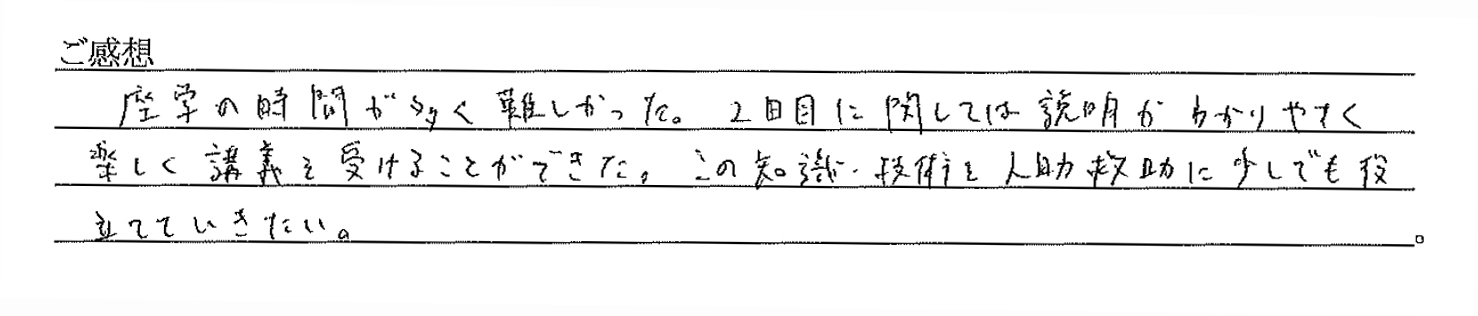 ご感想
座学の時間が多く難しかった。2日目に関しては説明がわかりやすく
楽しく講義を受けることができた。この知識・技術を人助救助に少しでも役
立てていきたい。
。